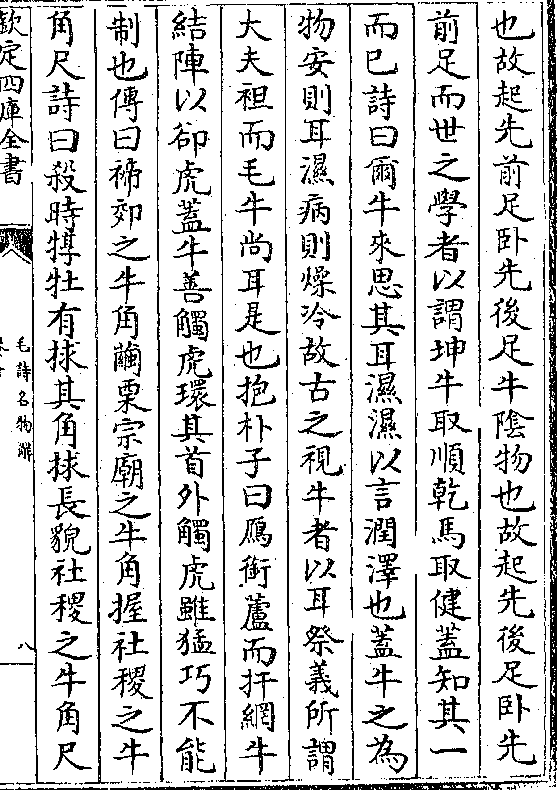 也故起先前足卧先後足牛隂物也故起先後足卧先
前足而世之學者以謂坤牛取順乾馬取健蓋知其一
而已詩曰爾牛來思其耳濕濕以言潤澤也蓋牛之為
物安則耳濕病則燥冷故古之視牛者以耳祭義所謂
大夫袒而毛牛尚耳是也抱朴子曰鴈銜蘆而扞網牛
結陣以卻虎蓋牛善觸虎環其首外觸虎雖猛巧不能
制也傳曰禘郊之牛角繭栗宗廟之牛角握社稷之牛
角尺詩曰殺時犉牡有捄其角捄長貌社稷之牛角尺
欽定四庫全書
毛詩名物解
八